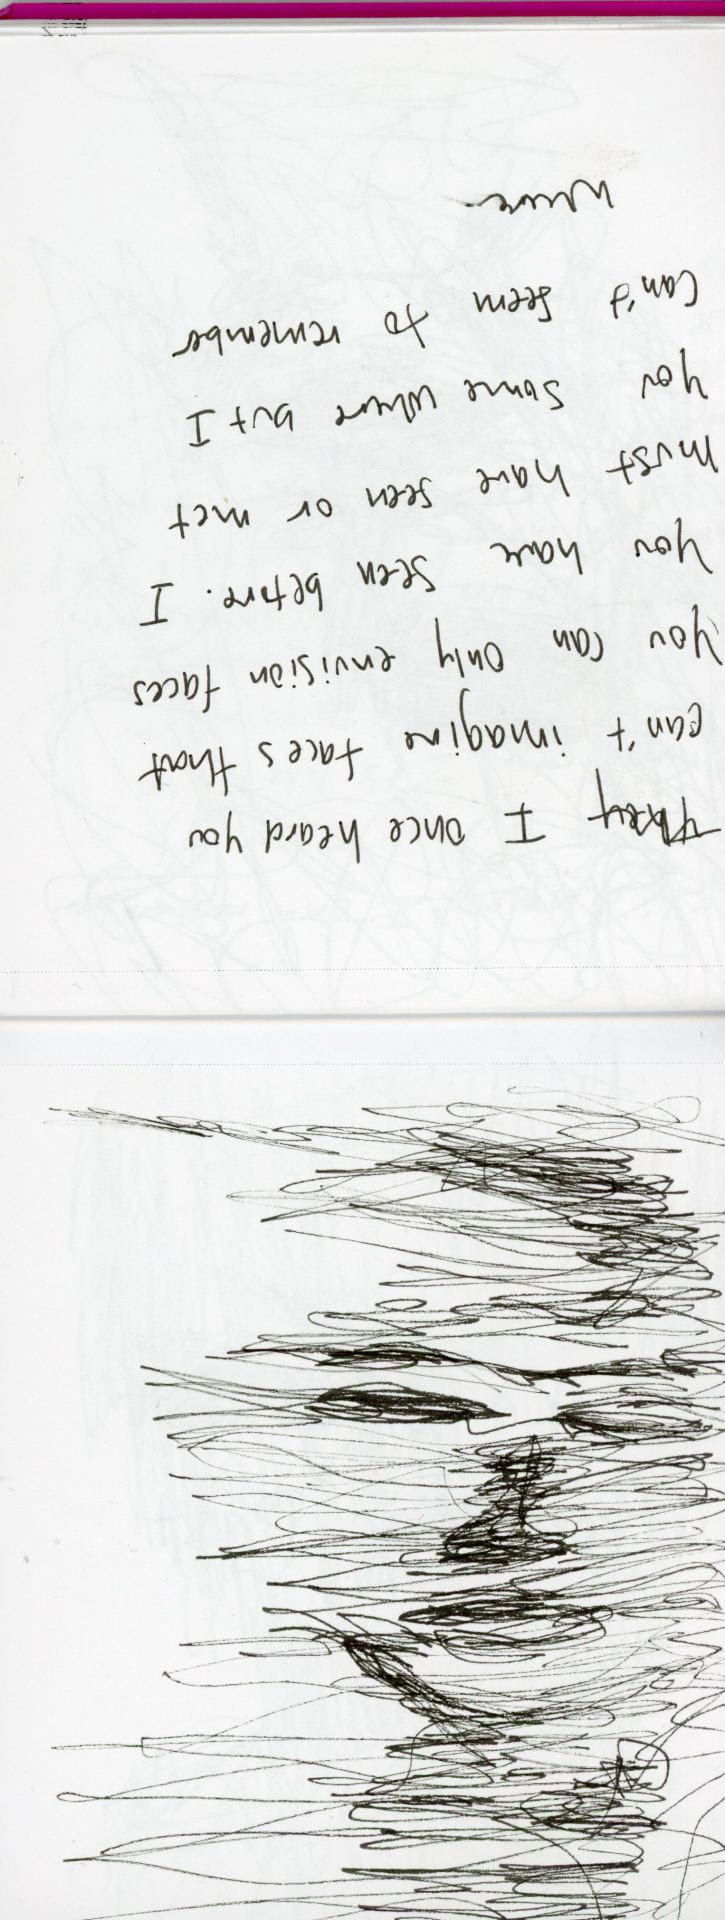 They I once heard you
can't imagine faces that
you can only envision faces
you have seen before. I
must have seen or met
you some where but I
can't seem to remember
where